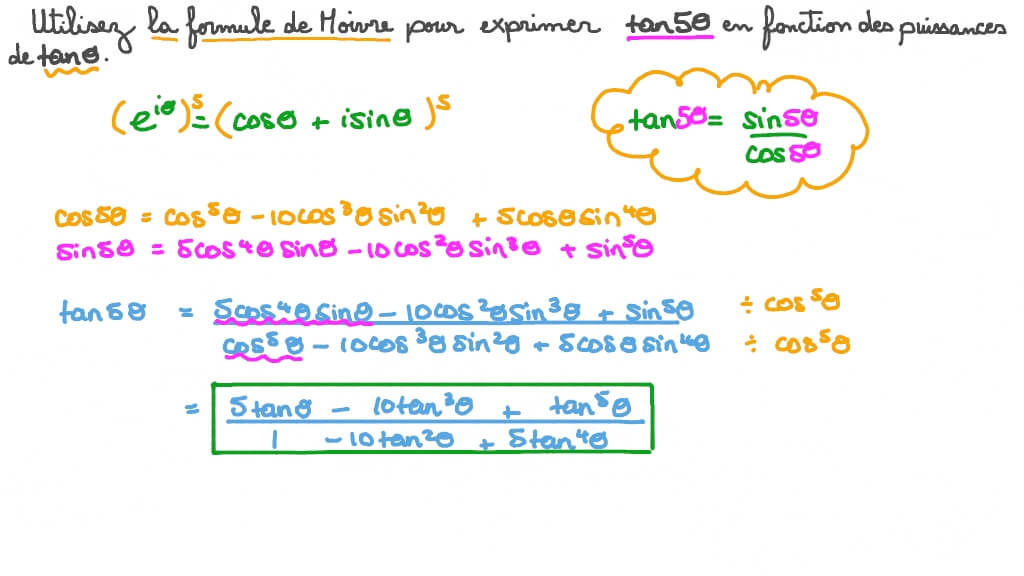 Utilisez la formule de Moivre pour exprimer tan5θ en fonction des puissances
de tanθ.
(e^{iθ})^5 = (cosθ + isinθ)^5
tan5θ = sin5θ / cos5θ
cos5θ = cos^5θ - 10cos^3θsin^2θ + 5cosθsin^4θ
sin5θ = 5cos^4θsinθ - 10cos^2θsin^3θ + sin^5θ
tan5θ = 5cos^4θsinθ - 10cos^2θsin^3θ + sin^5θ ÷ cos^5θ
cos^5θ - 10cos^3θsin^2θ + 5cosθsin^4θ ÷ cos^5θ
= 5tanθ - 10tan^3θ + tan^5θ
1 - 10tan^2θ + 5tan^4θ